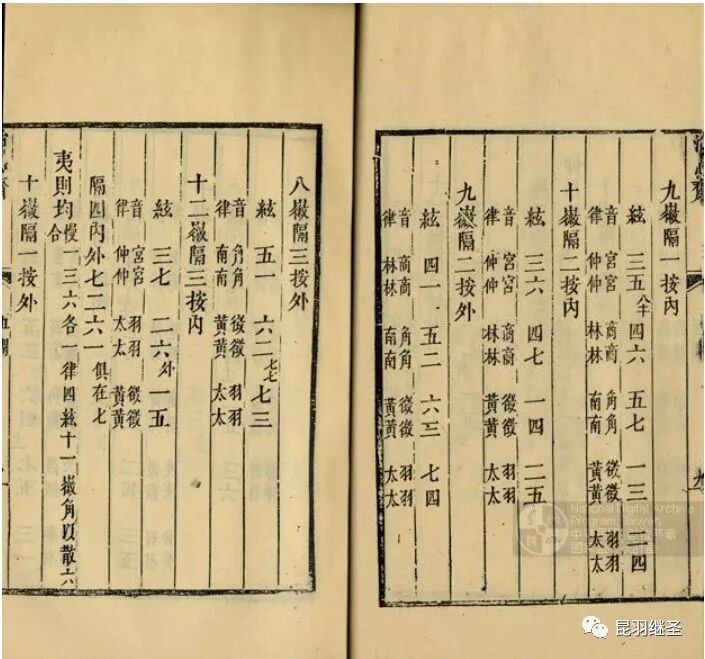 九徽隔一按內
絃 三五八半 四六 五七 一三 二四
音 宮宮 商商 角角 徵徵 羽羽
律 仲仲 林林 南南 黃黃 太太
十徽隔二按內
絃 三六 四七 一四 二五
音 宮宮 商商 徵徵 羽羽
律 仲仲 林林 黃黃 太太
九徽隔二按外
絃 四一 五二 六三 七四
音 商商 角角 徵徵 羽羽
律 林林 南南 黃黃 太太
八徽隔三按外
絃 五一 六二七七 七三
音 角角 徵徵 羽羽
律 南南 黃黃 太太
十二徽隔三按內
絃 三七 二六外 一五
音 宮宮 羽羽 徵徵
律 仲仲 太太 黃黃
隔四內外七二六一俱在七
夷則均慢一三六各一律四絃十一徽角以散六
合
十徽隔一按外
五調
九
National Digital Archives
Program, Taiwan
昆羽继圣